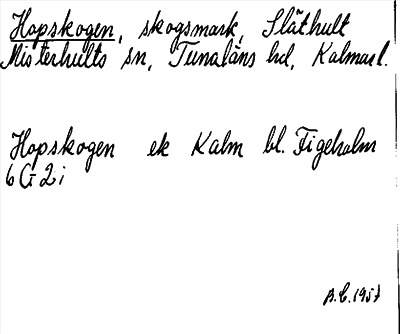 Hopskogen, skogsmark, Släthult
Misterhults sn, Tunaläns hd, Kalmar l.
Hopskogen ek Kalm bl. Figeholm
6 G 2 i
B.C. 1957